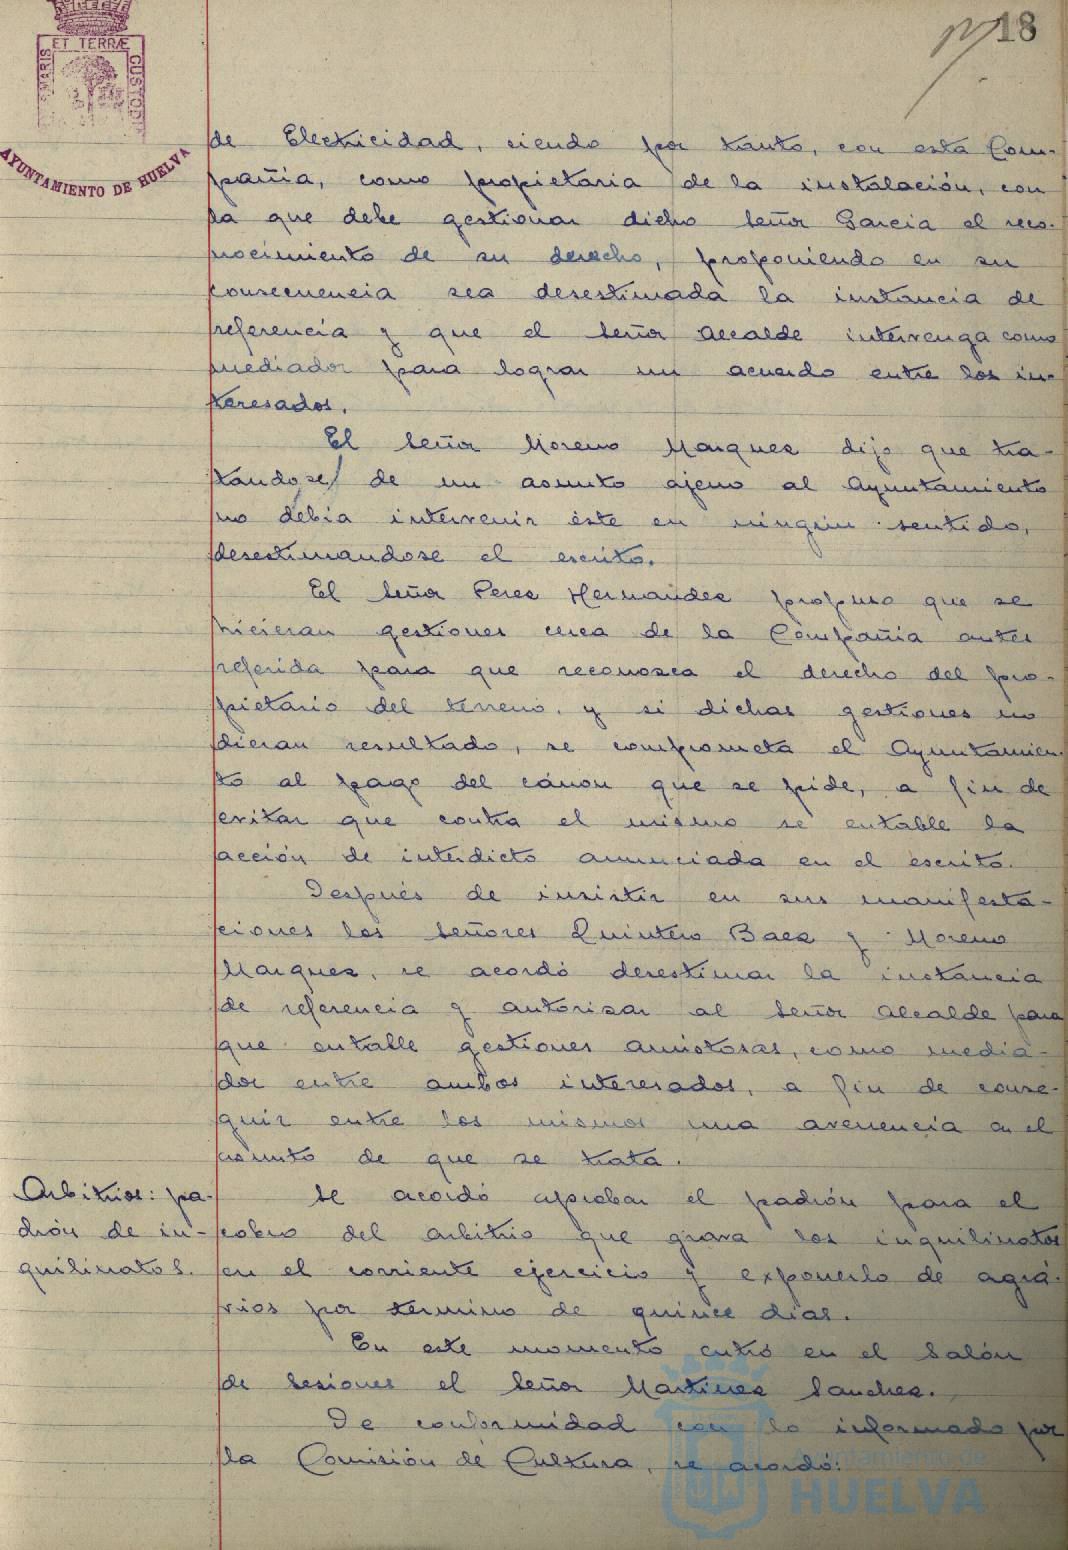 18
MARIS ET TERRÆ CUSTODI
AYUNTAMIENTO DE HUELVA
de Electricidad, siendo por tanto, con esta Com-
pañia, como propietaria de la instalación, con
la que debe gestionar dicho Señor Garcia el reco-
nocimiento de su derecho, proponiendo en su
consecuencia sea desestimada la instancia de
referencia y que el Señor Alcalde intervenga como
mediador para lograr un acuerdo entre los in-
teresados.
El Señor Moreno Marquez dijo que tra-
tandose de un asunto ajeno al Ayuntamiento
no debia intervenir éste en ningún sentido,
desestimandose el escrito.
El Señor Perez Hernandez propuso que se
hicieran gestiones cerca de la Compañia antes
referida para que reconozca el derecho del pro-
pietario del terreno, y si dichas gestiones no
dieran resultado, se comprometa el Ayuntamien-
to al pago del cánon que se pide, a fin de
evitar que contra el mismo se entable la
acción de interdicto anunciada en el escrito.
Después de insistir en sus manifesta-
ciones los Señores Quintero Baez y Moreno
Marquez, se acordó desestimar la instancia
de referencia y autorizar al Señor Alcalde para
que entable gestiones amistosas, como media-
dor entre ambos interesados, a fin de conse-
guir entre los mismos una avenencia en el
asunto de que se trata.
Arbitrios: pa-
drón de in-
quilinatos.
Se acordó aprobar el padrón para el
cobro del arbitrio que grava los inquilinatos
en el corriente ejercicio y exponerlo de agra-
vios por termino de quince dias.
En este momento entró en el Salón
de Sesiones el Señor Martinez Sanchez.
De conformidad con lo informado por
la Comisión de Cultura, se acordó:
Ayuntamiento de
HUELVA